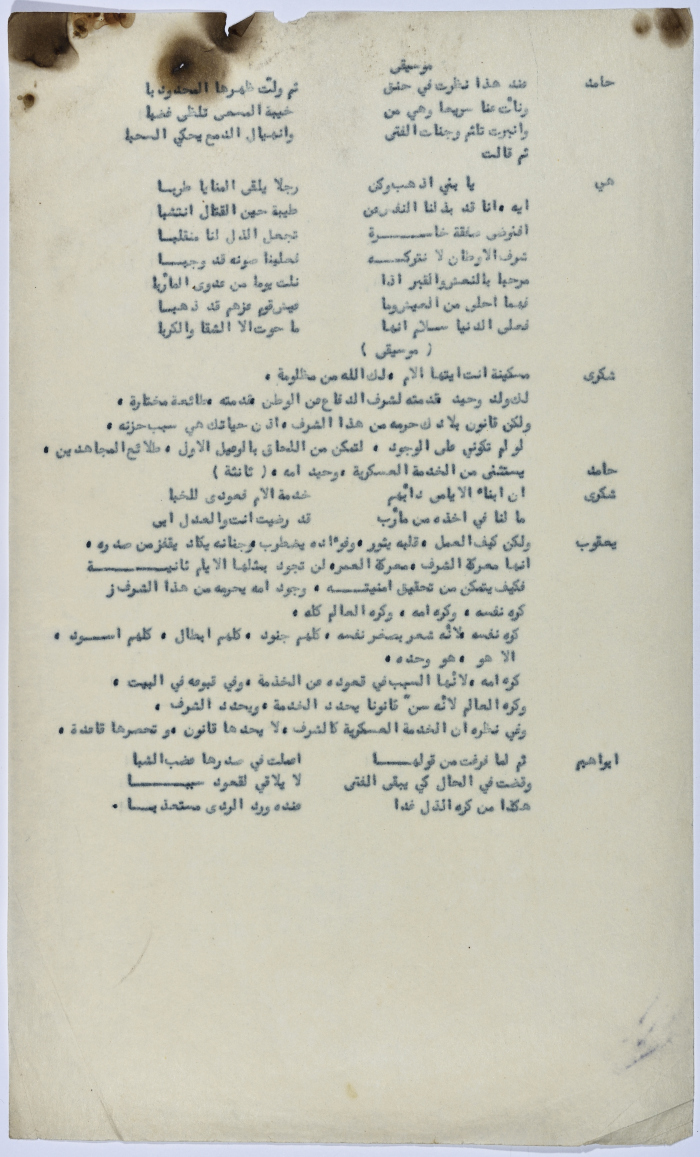 موسيقى
حامد عند هذا نظرت في حنق ثم ولّت ظهرها المحدود با
ونأت عنا سريعا وهي من خيبة المسعى تلظى غضبا
وانبرت تلثم وجنات الفتى وانهيال الدمع يحكي السحبا
ثم قالت
هي يا بني اذهب وكن رجلا يلقى المنايا طربا
ايه ، انا قد بذلنا النفس عن طيبة حين القتال انتشبا
افنرضى صفقة خاســـرة تجعل الذل لنا منقلبـا
شرف الاوطان لا نتركـــه فعلينا صونه قد وجبـــا
مرحبا بالنعش والقبر اذا نلت يوما من عدوى المأربا
فهما احلى من العيش وما عيش قوم عزهم قد ذهبـا
فعلى الدنيا ســلام انها ما حوت الا الشقا والكربا
( موسيقى )
شكرى مسكينة انت ايتها الام ، لك الله من مظلومة ،
لك ولد وحيد قدمته لشرف الدفاع عن الوطن ، قدمته ، طائعة مختارة ،
ولكن قانون بلادك حرمه من هذا الشرف ، اذن حياتك هي سبب حزنه ،
لو لم تكوني على الوجود ، لتمكن من اللحاق بالرعيل الاول ، طلائع المجاهدين ،
حامد يستثنى من الخدمة العسكرية ، وحيد امه ، ( ثانثة )
شكرى ان ابناء الاياس دابهم خدمة الام فعودى للخبا
ما لنا في اخذه من مأرب قد رضيت انت والعدل ابى
يعقوب ولكن كيف العمل ، قلبه يثور ، وفؤاده يضطرب ، وجنانه يكاد يقفز من صدره ،
انها معركة الشرف ، معركة العمر ، لن تجود بمثلها الايام ثانيـــــة
فكيف يتمكن من تحقيق امنيتـــه ، وجود امه يحرمه من هذا الشرف ز
كره نفسه ، وكره امه ، وكره العالم كله ،
كره نفسه ، لانّه شعر بصغر نفسه ، كلهم جنود ، كلهم ابطال ، كلهم اســود ،
الا هو ، هو وحده ،
كره امه ، لانّها السبب في قعوده عن الخدمة ، وفي قبوعه في البيت ،
وكره العالم لانّه سنّ قانونا يحدد الخدمة ، ويحدد الشرف ،
وفي نظره ان الخدمة العسكرية كالشرف ، لا يحدها قانون ، و تحصرها قاعدة ،
ابراهيم ثم لما فرغت من قولهـــا اعملت في صدرها عضب الشبا
وقضت في الحال كي يبقى الفتى لا يلاقي لقعود سببـــــا
هكذا من كره الذل غدا عنده ورد الردى مستحذبـــا .